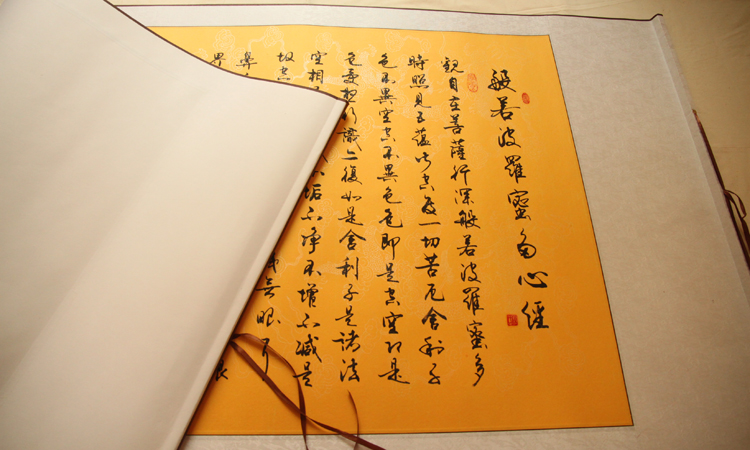 般若波羅蜜多心經
觀自在菩薩行深般若波羅蜜多
時照見五蘊皆空度一切苦厄舍利子
色不異空空不異色色即是空空即是
色受想行識亦復如是舍利子是諸法
空相不垢不淨不增不減是
故空識無眼耳
鼻
界